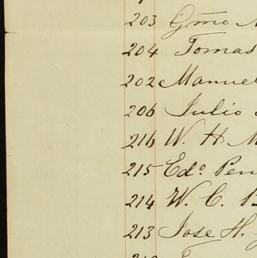 203 Gmo
204 Tomas
202 Manuel
206 Julio
216 W. H. M
215 Edo. Pen
214 W. C.
213 Jose H.